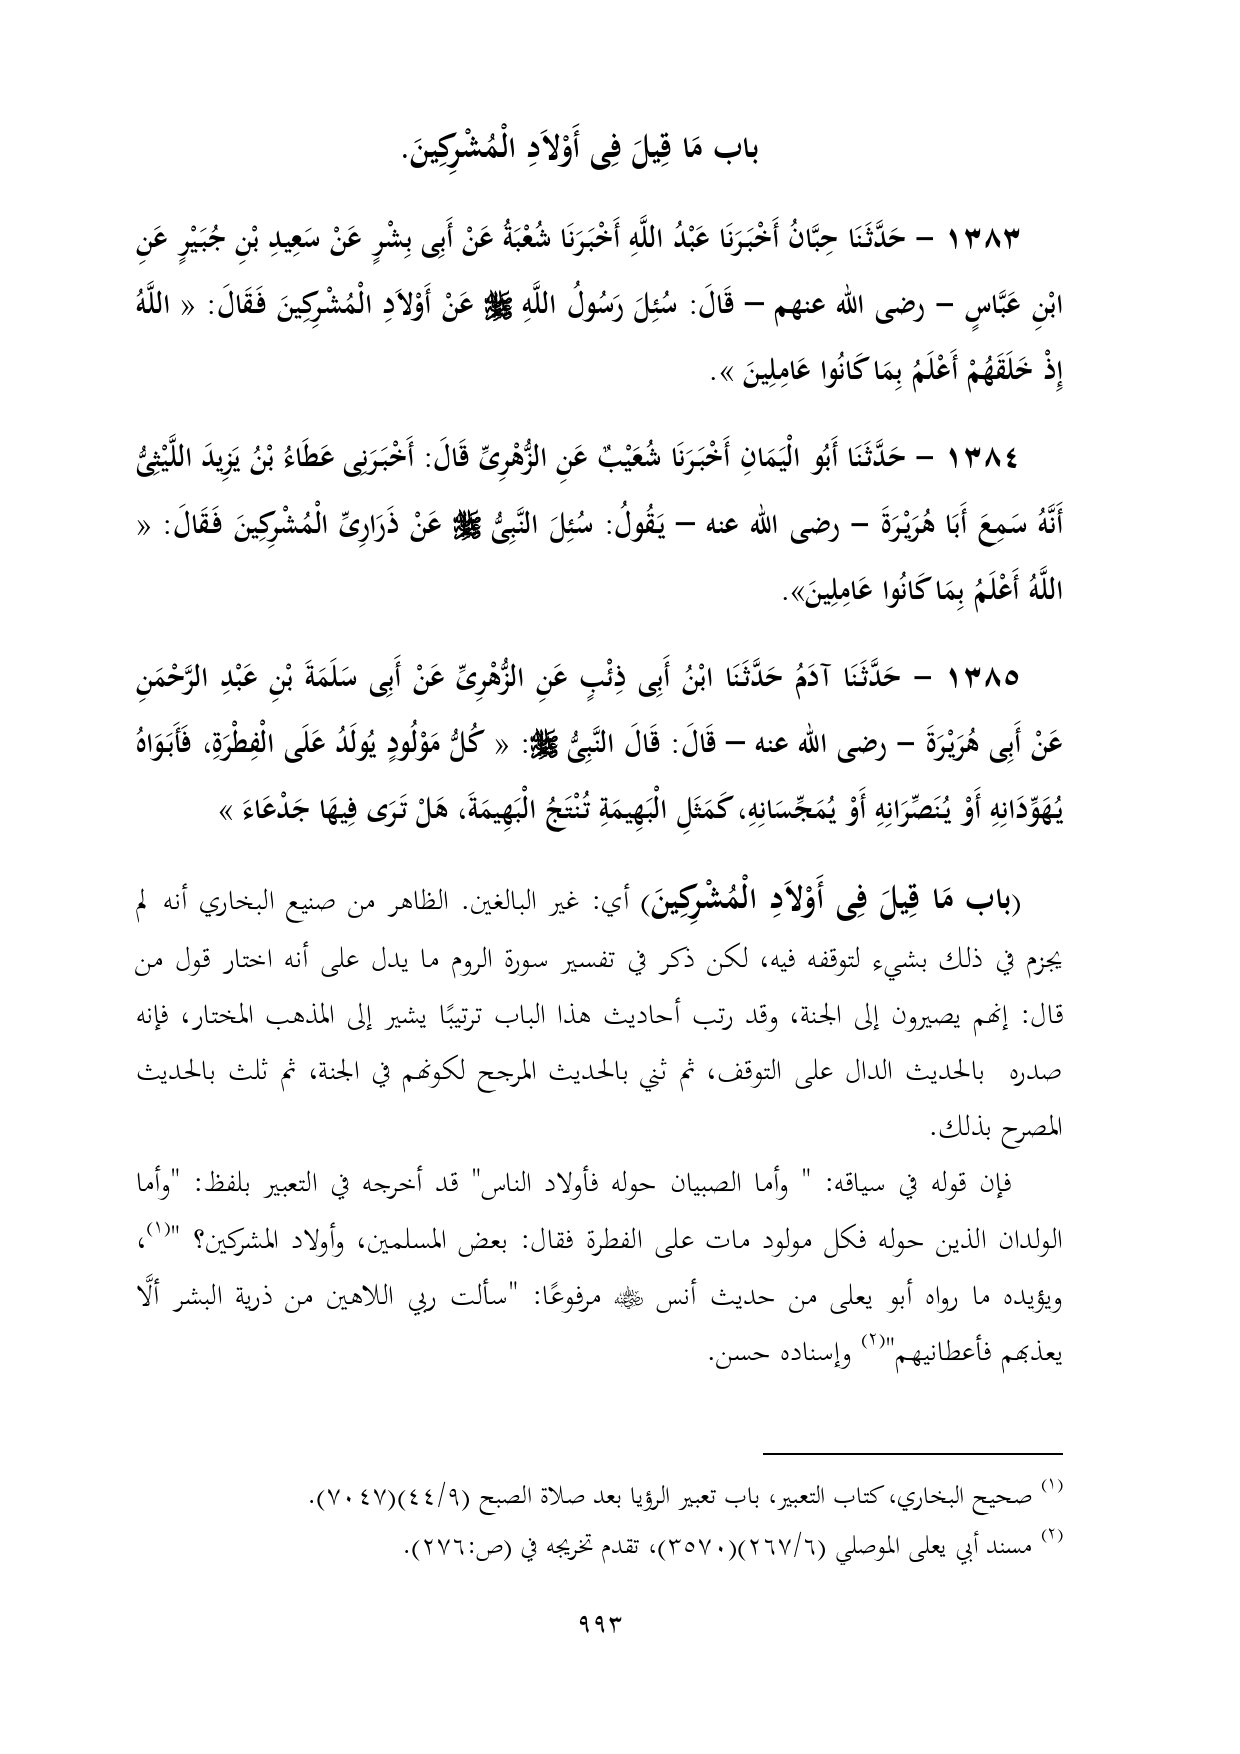 باب مَا قِيلَ فِى أَوْلاَدِ الْمُشْرِكِينَ.
١٣٨٣ – حَدَّثَنَا حِبَّانُ أَخْبَرَنَا عَبْدُ اللَّهِ أَخْبَرَنَا شُعْبَةُ عَنْ أَبِى بِشْرٍ عَنْ سَعِيدِ بْنِ جُبَيْرٍ عَنِ
ابْنِ عَبَّاسٍ – رضى الله عنهم – قَالَ: سُئِلَ رَسُولُ اللَّهِ ﷺ عَنْ أَوْلاَدِ الْمُشْرِكِينَ فَقَالَ: « اللَّهُ
إِذْ خَلَقَهُمْ أَعْلَمُ بِمَا كَانُوا عَامِلِينَ ».
١٣٨٤ – حَدَّثَنَا أَبُو الْيَمَانِ أَخْبَرَنَا شُعَيْبٌ عَنِ الزُّهْرِىِّ قَالَ: أَخْبَرَنِى عَطَاءُ بْنُ يَزِيدَ اللَّيْثِىُّ
أَنَّهُ سَمِعَ أَبَا هُرَيْرَةَ – رضى الله عنه – يَقُولُ: سُئِلَ النَّبِىُّ ﷺ عَنْ ذَرَارِىِّ الْمُشْرِكِينَ فَقَالَ: «
اللَّهُ أَعْلَمُ بِمَا كَانُوا عَامِلِينَ».
١٣٨٥ – حَدَّثَنَا آدَمُ حَدَّثَنَا ابْنُ أَبِى ذِئْبٍ عَنِ الزُّهْرِىِّ عَنْ أَبِى سَلَمَةَ بْنِ عَبْدِ الرَّحْمَنِ
عَنْ أَبِى هُرَيْرَةَ – رضى الله عنه – قَالَ: قَالَ النَّبِىُّ ﷺ: « كُلُّ مَوْلُودٍ يُولَدُ عَلَى الْفِطْرَةِ، فَأَبَوَاهُ
يُهَوِّدَانِهِ أَوْ يُنَصِّرَانِهِ أَوْ يُمَجِّسَانِهِ، كَمَثَلِ الْبَهِيمَةِ تُنْتَجُ الْبَهِيمَةَ، هَلْ تَرَى فِيهَا جَدْعَاءَ »
(باب مَا قِيلَ فِى أَوْلاَدِ الْمُشْرِكِينَ) أي: غير البالغين. الظاهر من صنيع البخاري أنه لم
يجزم في ذلك بشيء لتوقفه فيه، لكن ذكر في تفسير سورة الروم ما يدل على أنه اختار قول من
قال: إنهم يصيرون إلى الجنة، وقد رتب أحاديث هذا الباب ترتيبًا يشير إلى المذهب المختار، فإنه
صدره بالحديث الدال على التوقف، ثم ثني بالحديث المرجح لكونهم في الجنة، ثم ثلث بالحديث
المصرح بذلك.
فإن قوله في سياقه: " وأما الصبيان حوله فأولاد الناس" قد أخرجه في التعبير بلفظ: "وأما
الولدان الذين حوله فكل مولود مات على الفطرة فقال: بعض المسلمين، وأولاد المشركين؟ "(١)،
ويؤيده ما رواه أبو يعلى من حديث أنس ﵁ مرفوعًا: "سألت ربي اللاهين من ذرية البشر ألَّا
يعذبهم فأعطانيهم"(٢) وإسناده حسن.
(١) صحيح البخاري، كتاب التعبير، باب تعبير الرؤيا بعد صلاة الصبح (٤٤/٩)(٧٠٤٧).
(٢) مسند أبي يعلى الموصلي (٢٦٧/٦)(٣٥٧٠)، تقدم تخريجه في (ص:٢٧٦).
٩٩٣